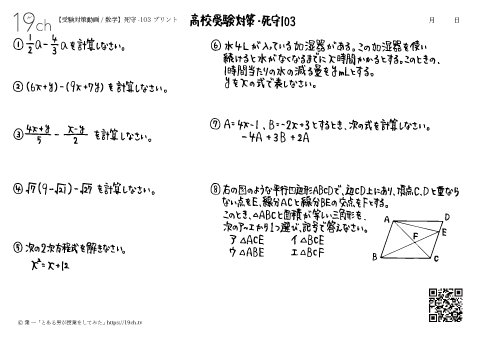 19ch 【受験対策動画 / 数学】死守 -103 プリント 高校受験対策・死守103 月 日
① 1/2 a - 4/3 a を計算しなさい。
② (6x+y)-(9x+7y) を計算しなさい。
③ 4x+y/5 - x-y/2 を計算しなさい。
④ √7(9-√21)-√27 を計算しなさい。
⑤ 次の2次方程式を解きなさい。
x²=x+12
⑥ 水4Lが入っている加湿器がある。この加湿器を使い
続けると水がなくなるまでにx時間かかるとする。このとき、
1時間当たりの水の減る量をymLとする。
yをxの式で表しなさい。
⑦ A=4x-1、B=-2x+3とするとき、次の式を計算しなさい。
-4A+3B+2A
⑧ 右の図のような平行四辺形ABCDで、辺CD上にあり、頂点C、Dと重なら
ない点をE、線分ACと線分BEの交点をFとする。
このとき、△ABCと面積が等しい三角形を、
次のア〜エから1つ選び、記号で答えなさい。
ア △ACE イ △BCE
ウ △ABE エ △BCF
A D
E
F
B C
© 葉一「とある男が授業をしてみた」https://19ch.tv